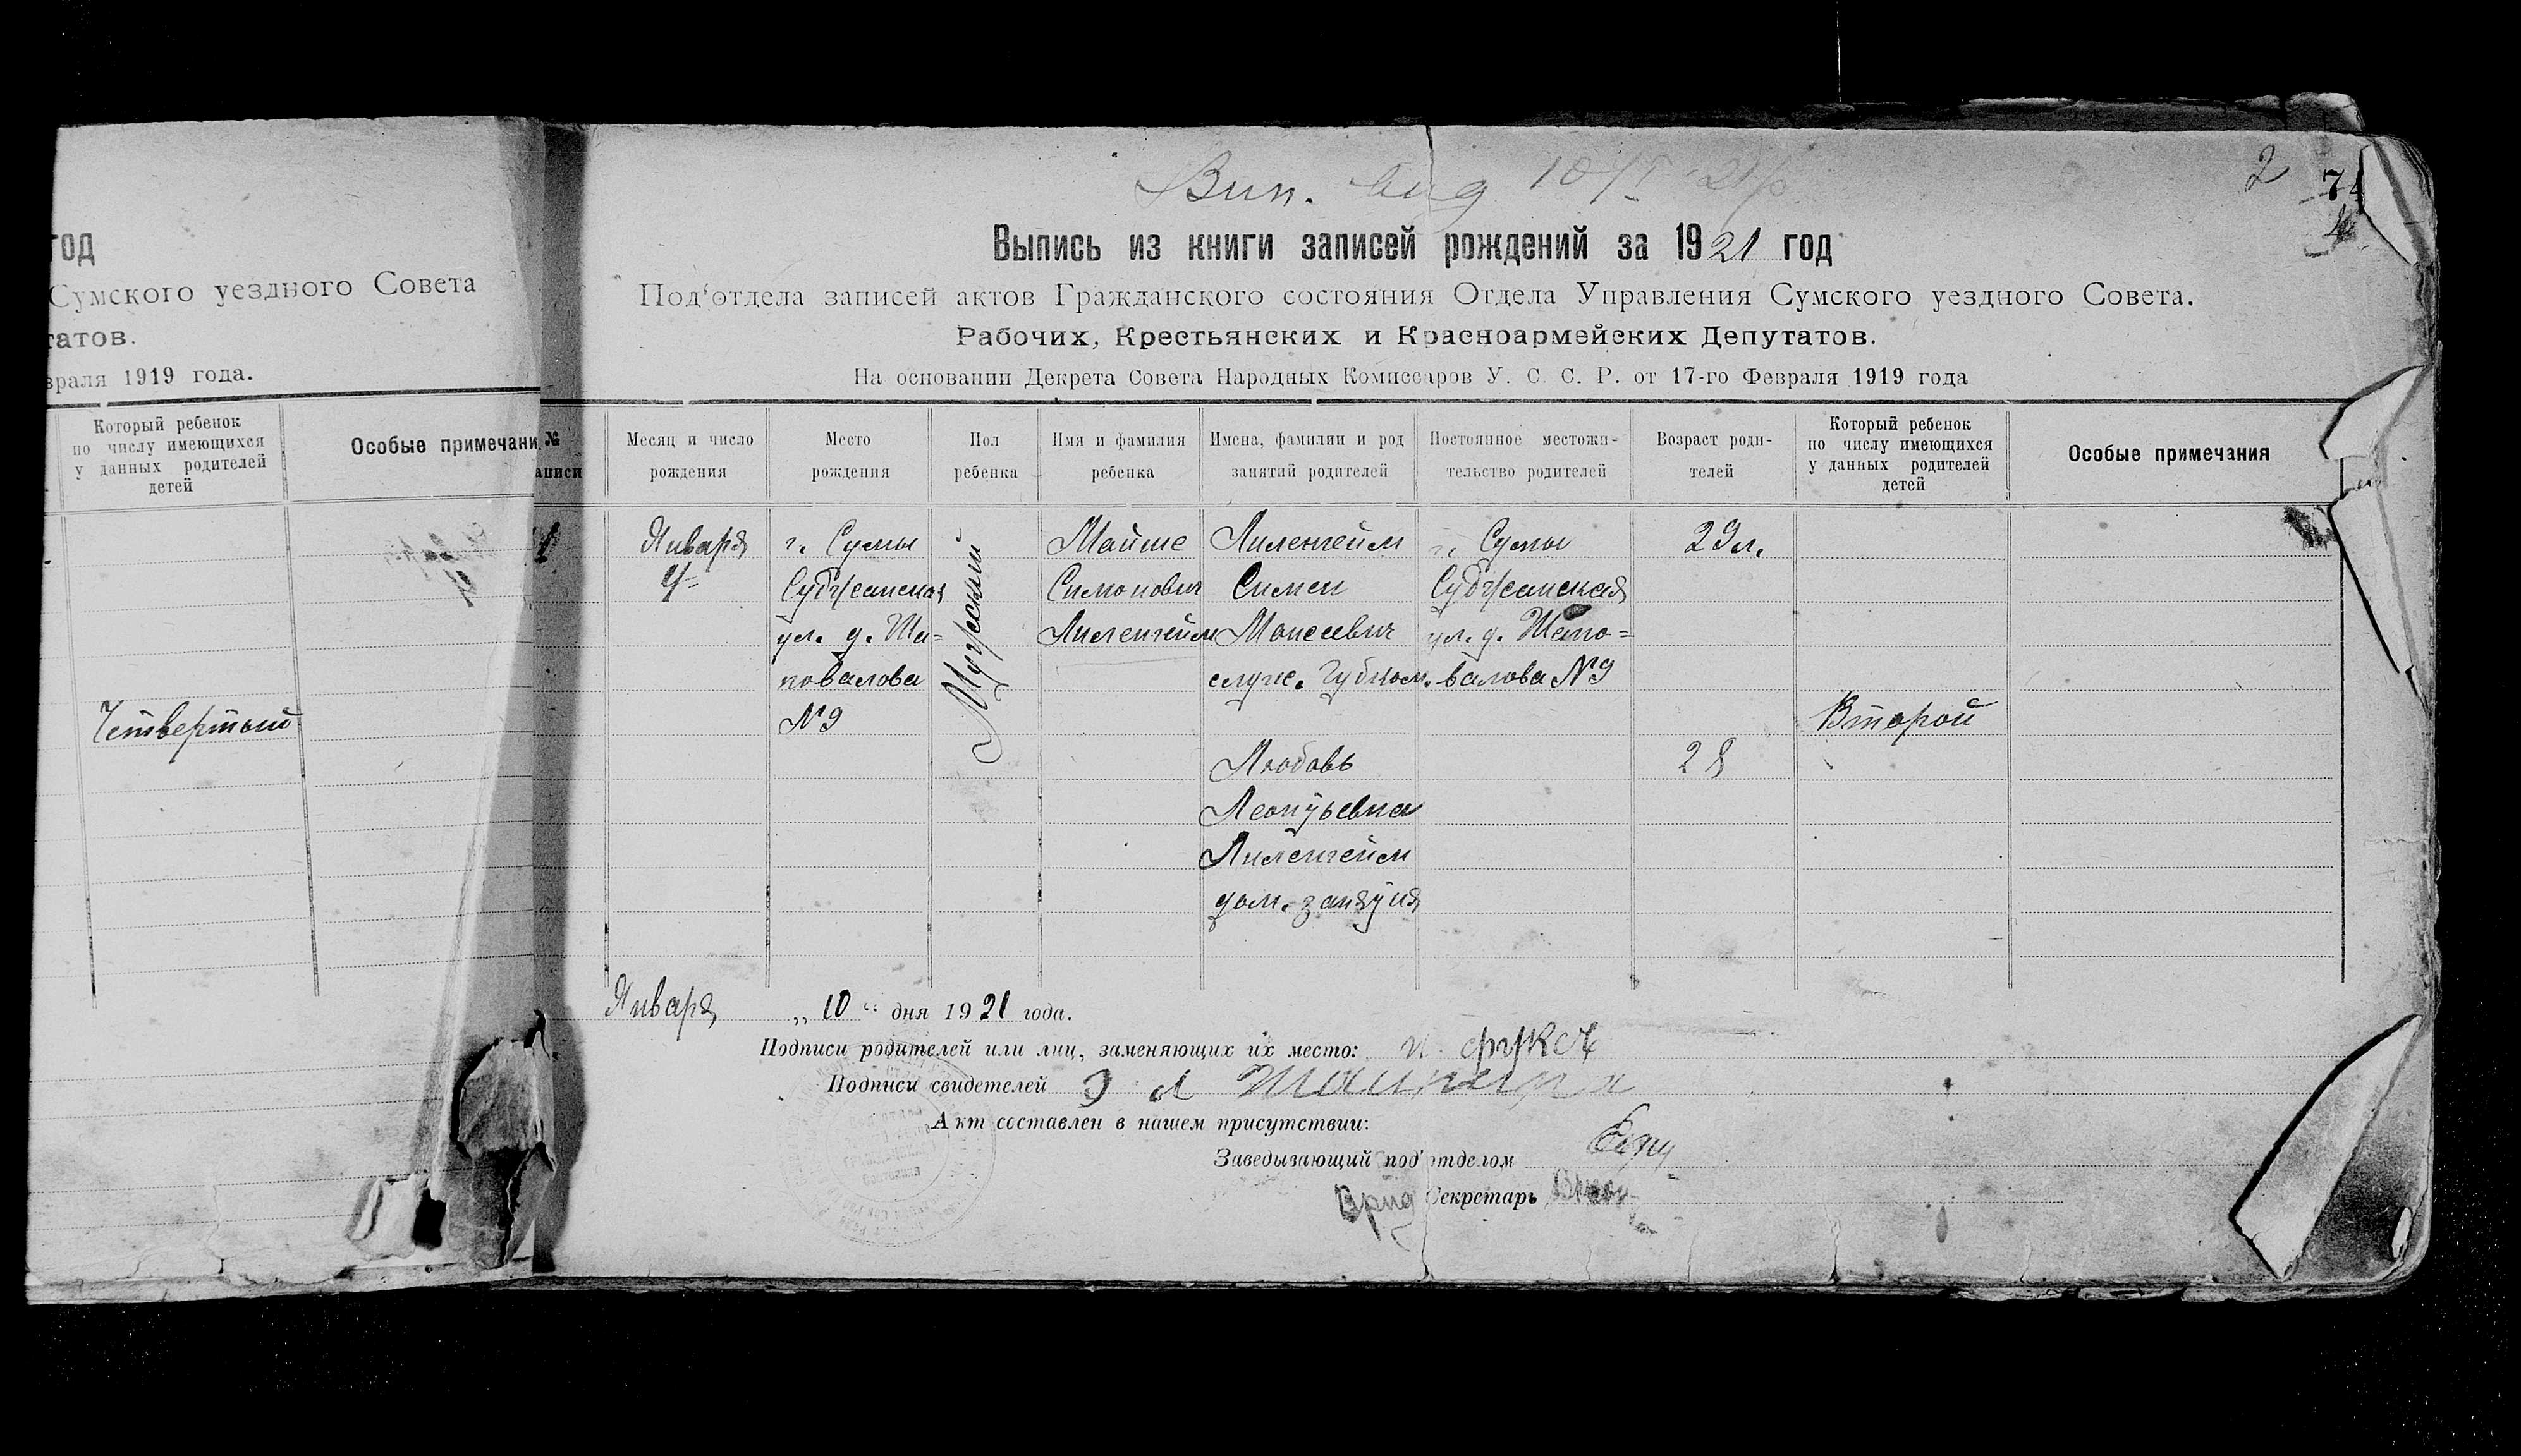 год
Сумского уездного Совета
татов.
враля 1919 года.
Который ребенок
по числу имеющихся
у данных родителей
детей
Особые примечани
Четвертый
Вип. вид 10/I 21 р
2
Выпись из книги записей рождений за 1921 год
Под'отдела записей актов Гражданского состояния Отдела Управления Сумского уездного Совета.
Рабочих, Крестьянских и Красноармейских Депутатов.
На основании Декрета Совета Народных Комиссаров У. С. С. Р. от 17-го Февраля 1919 года
№
аписи
Месяц и число
рождения
Место
рождения
Пол
ребенка
Имя и фамилия
ребенка
Имена, фамилии и род
занятий родителей
Постоянное местожи-
тельство родителей
Возраст роди-
телей
Который ребенок
по числу имеющихся
у данных родителей
детей
Особые примечания
Января
4
г. Сумы
Суджанская
ул. д. Ша=
повалова
№9
Мужский
Мойше
Симонович
Лиленгейм
Лиленгейм
Симен
Моисеевич
служ. Губком.
Любовь
Леонтьевна
Лиленгейм
дом. занятия
г. Сумы
Суджанская
ул. д. Шапо=
валова №9
29 л.
28
Второй
Января „10“ дня 1921 года.
Подписи родителей или лиц, заменяющих их место: И. Фукс
Подписи свидетелей
Акт составлен в нашем присутствии:
Заведывающий под'отделом
Врид Секретарь